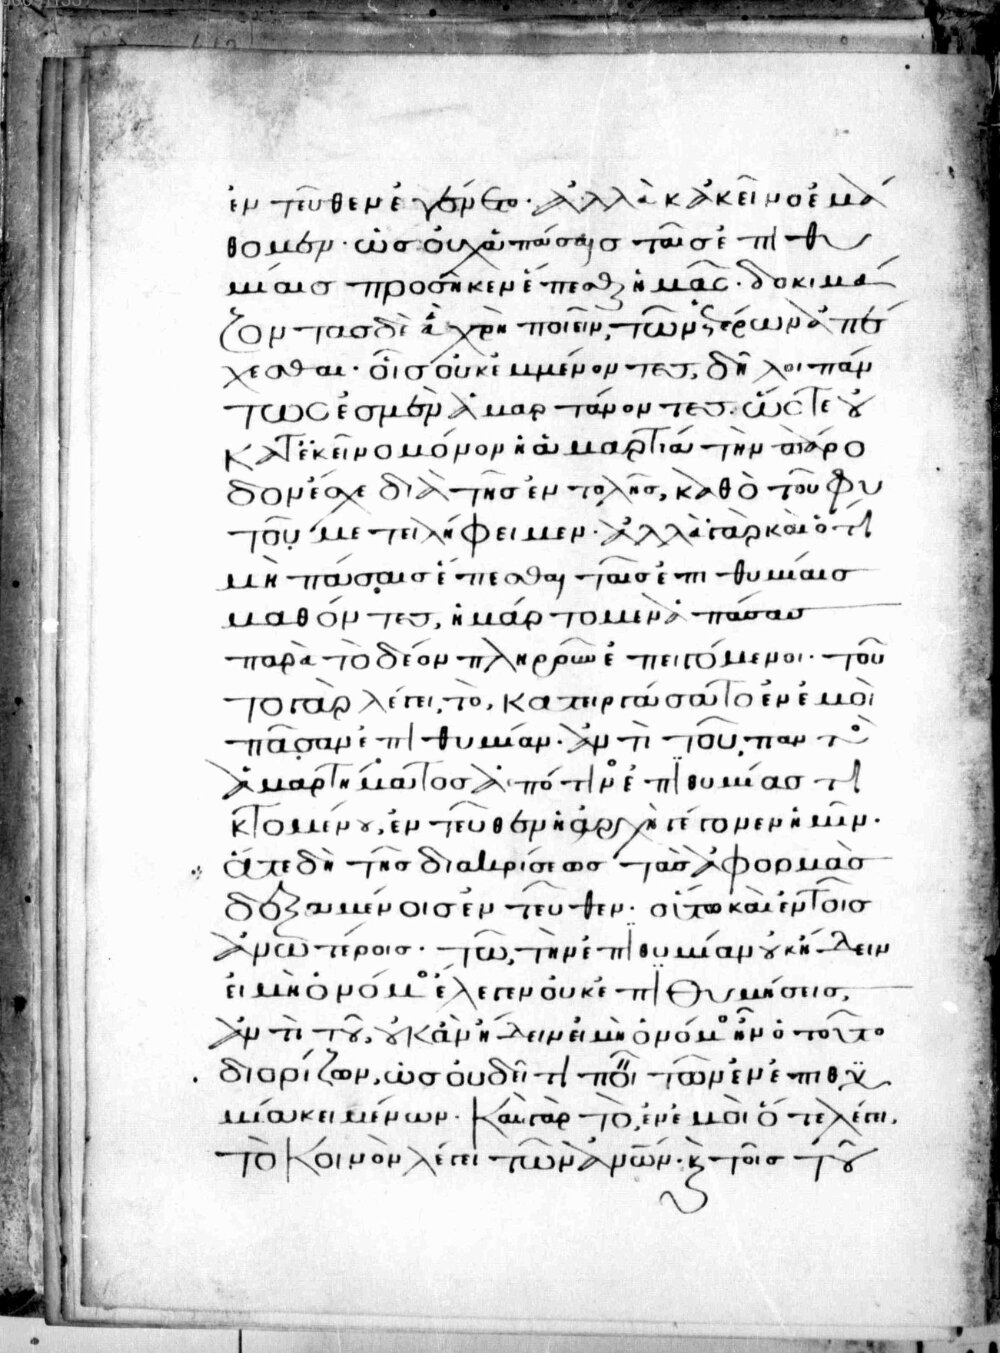 ἐντεῦθεν ἐγένετο· ἀλλὰ κἀκεῖνο ἐμά
θομεν· ὡς οὐχ ἁπάσαις ταῖς ἐπιθυ
μίαις προσῆκεν ἕπεσθαι ἡμᾶς· δοκιμά
ζοντας δὲ ἃ χρὴ ποιεῖν, τῶν ἑτέρων ἀπέ
χεσθαι· οἷς οὐκ ἐμμένοντες, δῆλοι πάν
τως ἐσμὲν ἁμαρτάνοντες. ὥστε οὐ
κατ' ἐκεῖνο μόνον ἡ ἁμαρτία τὴν πάρο
δον ἔσχε διὰ τῆς ἐντολῆς, καθὸ τοῦ φυ
τοῦ μετειλήφειμεν· ἀλλὰ γὰρ καὶ ὅτι
μὴ πάσαις ἕπεσθαι ταῖς ἐπιθυμίαις
μαθόντες, ἡμάρτομεν ἁπάσας
παρὰ τὸ δέον πληροῦν ἐπειγόμενοι· τοῦ
το γὰρ λέγει, τὸ, κατειργάσατο ἐν ἐμοὶ
πᾶσαν ἐπιθυμίαν· ἀντὶ τοῦ, παντὸς
ἁμαρτήματος ἀπό τινος ἐπιθυμίας τι
κτομένου, ἐντεῦθεν ἡ ἀρχὴ γέγονεν ἡμῖν·
ἅτε δὴ τῆς διακρίσεως τὰς ἀφορμὰς
δεξαμένοις ἐντεῦθεν· οὕτω καὶ ἐν τοῖς
ἀνωτέροις· τῶ, τὴν ἐπιθυμίαν οὐκ ἤδειν
εἰ μὴ ὁ νόμος ἔλεγεν οὐκ ἐπιθυμήσεις,
ἀντὶ τοῦ, οὐκ ἂν ἤδειν εἰ μὴ ὁ νόμος ἦν ὁ τοῦτο
διορίζων, ὡς οὐ δεῖ τι ποιεῖν τῶν ἐν ἐπιθυ
μία κειμένων· καὶ γὰρ τὸ, ἐν ἐμοὶ ὅτε λέγει,
τὸ κοινὸν λέγει τῶν ἀνων· καὶ τοῖς τοῦ